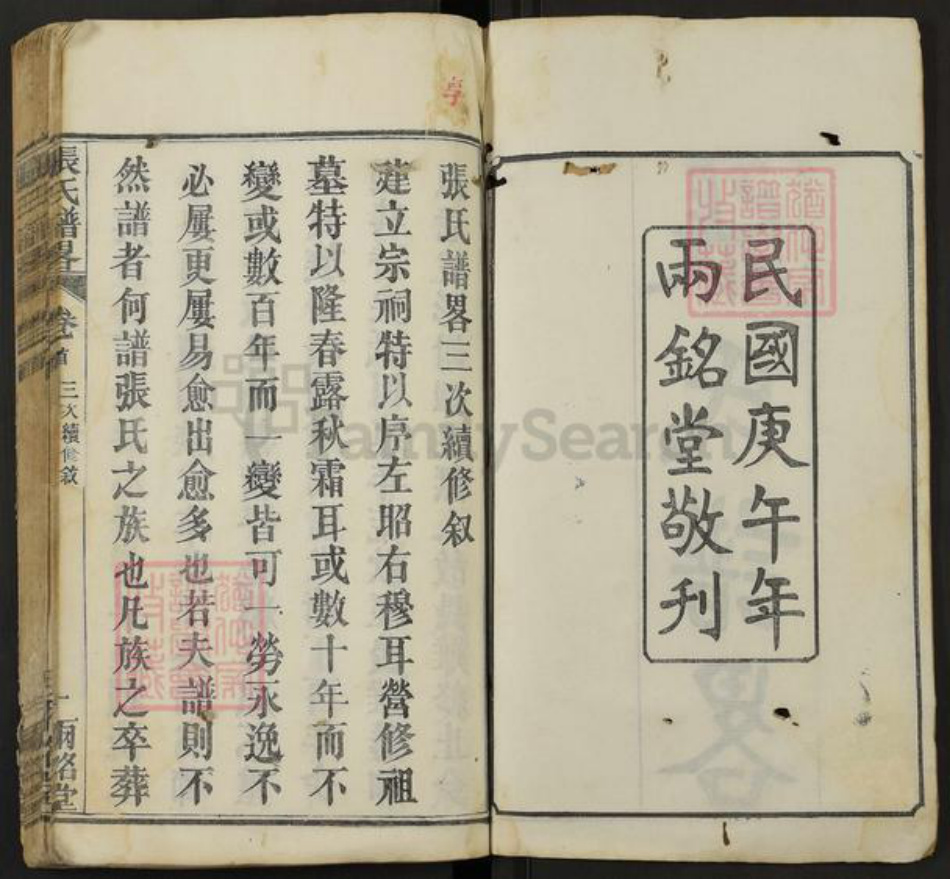 民國庚午年
兩銘堂敬刊
享
張氏譜畧三次續修叙
建立宗祠特以序左昭右穆耳營修祖
墓特以隆春露秋霜耳或數十年而不
變或數百年而一變皆可一勞永逸不
必屢更屢易愈出愈多也若夫譜則不
然譜者何譜張氏之族也凡族之卒葬
張氏譜畧 卷首 三次續修敘 一 兩銘堂
FamilySearch